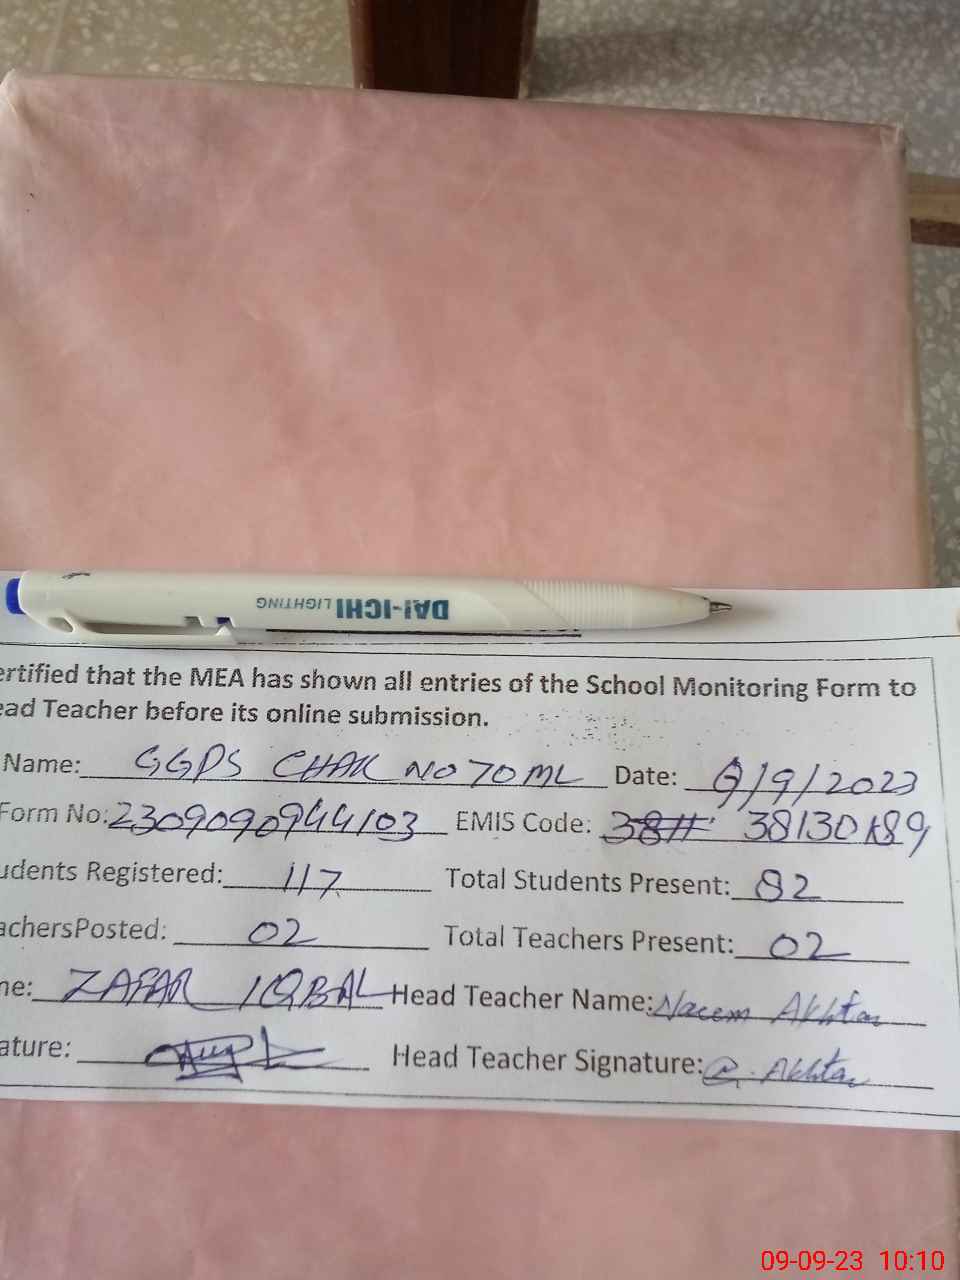 DAI-ICHI LIGHTING
ertified that the MEA has shown all entries of the School Monitoring Form to
ead Teacher before its online submission.
Name: GGPS CHAK NO 70 ML Date: 9/9/2023
Form No: 2309090944103 EMIS Code: 38130189
udents Registered: 117 Total Students Present: 82
achersPosted: 02 Total Teachers Present: 02
ne: ZAFAR IQBAL Head Teacher Name: Naeem Akhtar
ature: Head Teacher Signature: Akhtar
09-09-23 10:10